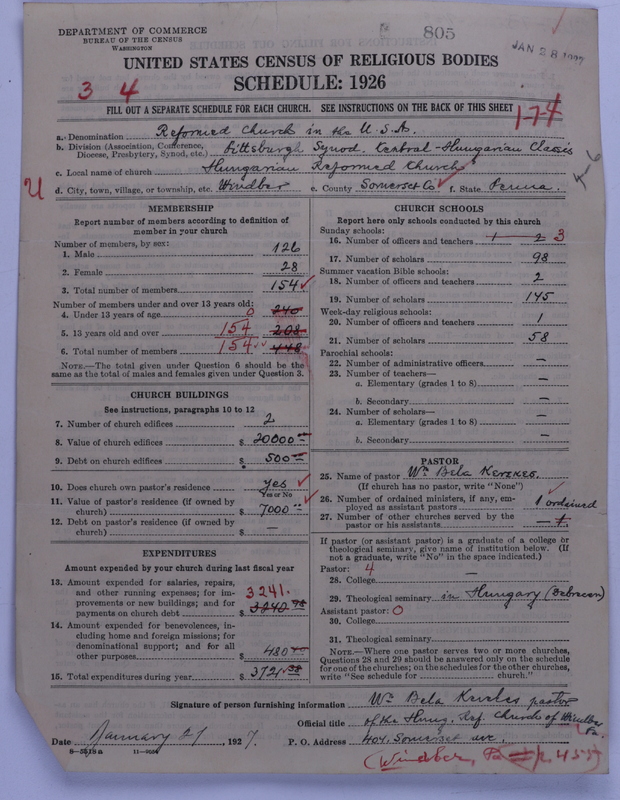 DEPARTMENT OF COMMERCE
BUREAU OF THE CENSUS
WASHINGTON
805
JAN 28 1927
UNITED STATES CENSUS OF RELIGIOUS BODIES
SCHEDULE: 1926
3 4
FILL OUT A SEPARATE SCHEDULE FOR EACH CHURCH. SEE INSTRUCTIONS ON THE BACK OF THIS SHEET
1-7-4
a. Denomination Reformed Church in the U.S.A.
b. Division (Association, Conference, Diocese, Presbytery, Synod, etc.) Pittsburgh Synod. Central-Hungarian Classis
c. Local name of church Hungarian Reformed Church
d. City, town, village, or township, etc. Windber e. County Somerset Co f. State Penna.
MEMBERSHIP
Report number of members according to definition of
member in your church
Number of members, by sex:
1. Male 126
2. Female 28
3. Total number of members 154
Number of members under and over 13 years old:
4. Under 13 years of age 0 240
5. 13 years old and over 154 208
6. Total number of members 154 448
NOTE.—The total given under Question 6 should be the
same as the total of males and females given under Question 3.
CHURCH BUILDINGS
See instructions, paragraphs 10 to 12
7. Number of church edifices 2
8. Value of church edifices $ 20000
9. Debt on church edifices $ 500
10. Does church own pastor's residence yes
Yes or No
11. Value of pastor's residence (if owned by
church) $ 7000
12. Debt on pastor's residence (if owned by
church) $ —
EXPENDITURES
Amount expended by your church during last fiscal year
13. Amount expended for salaries, repairs,
and other running expenses; for im-
provements or new buildings; and for
payments on church debt $ 3241. 3240 98
14. Amount expended for benevolences, in-
cluding home and foreign missions; for
denominational support; and for all
other purposes $ 480
15. Total expenditures during year $ 3721
CHURCH SCHOOLS
Report here only schools conducted by this church
Sunday schools:
16. Number of officers and teachers 1 2 3
17. Number of scholars 98
Summer vacation Bible schools:
18. Number of officers and teachers 2
19. Number of scholars 145
Week-day religious schools:
20. Number of officers and teachers 1
21. Number of scholars 58
Parochial schools:
22. Number of administrative officers —
23. Number of teachers—
a. Elementary (grades 1 to 8) —
b. Secondary —
24. Number of scholars—
a. Elementary (grades 1 to 8) —
b. Secondary —
PASTOR
25. Name of pastor Wm Bela Kerekes.
(If church has no pastor, write "None")
26. Number of ordained ministers, if any, em-
ployed as assistant pastors 1 ordained
27. Number of other churches served by the
pastor or his assistants — 1
If pastor (or assistant pastor) is a graduate of a college or
theological seminary, give name of institution below. (If
not a graduate, write "No" in the space indicated.)
Pastor: 4
28. College —
29. Theological seminary in Hungary (Debrecen)
Assistant pastor: 0
30. College
31. Theological seminary
NOTE.—Where one pastor serves two or more churches,
Questions 28 and 29 should be answered only on the schedule
for one of the churches; on the schedules for the other churches,
write "See schedule for church."
Signature of person furnishing information Wm Bela Kerekes pastor
Official title of the Hung. Ref. Church of Windber Pa.
Date January 27, 1927. P. O. Address 404. Somerset ave.
8-5518a 11-9054
(Windber, Pa